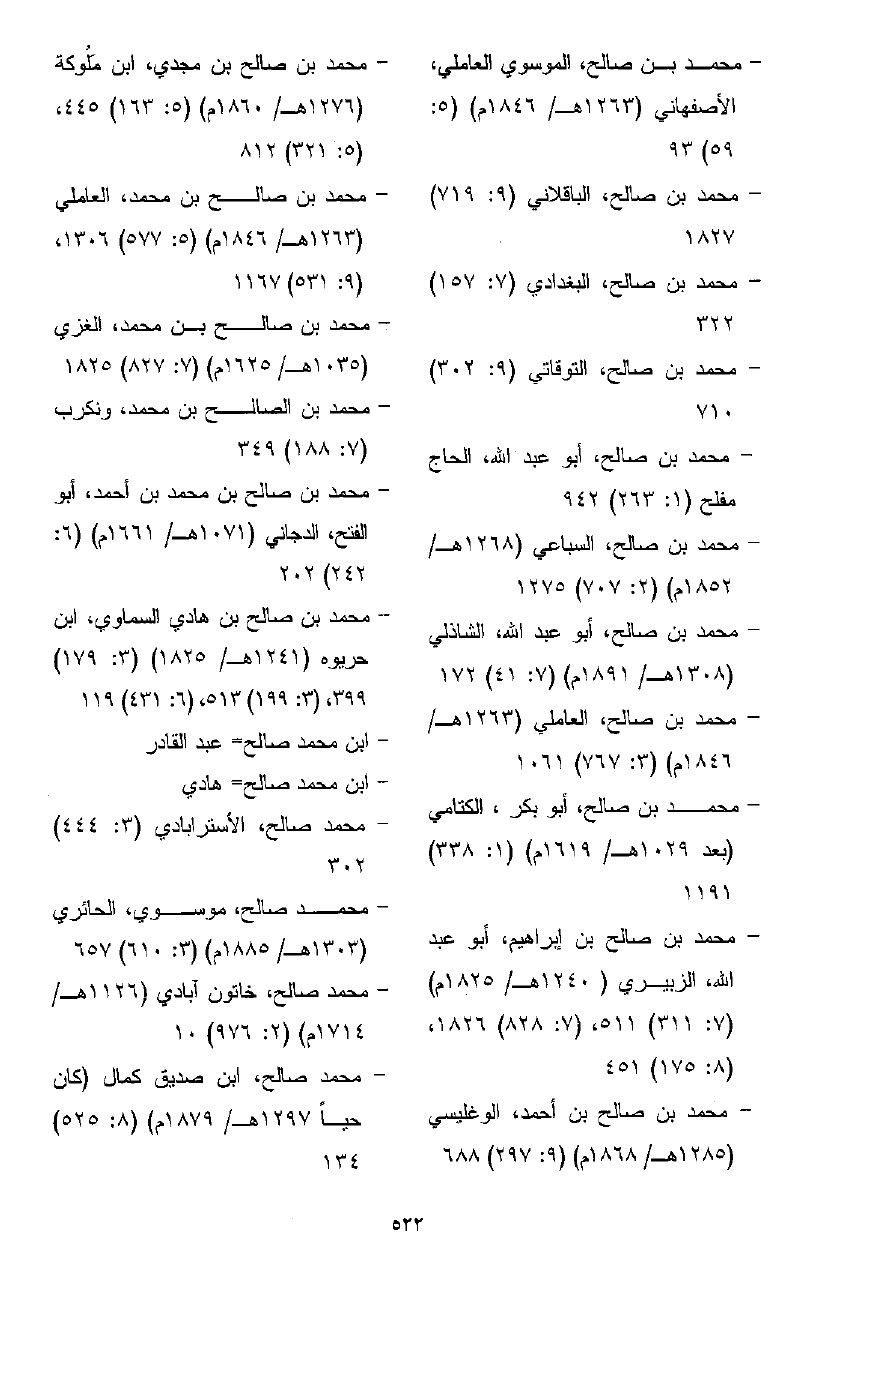 – محمد بن صالح، الموسوي العاملي،
الأصفهاني (١٢٦٣هـ/ ١٨٤٦م) (٥:
٥٩) ٩٣
– محمد بن صالح، الباقلاني (٩: ٧١٩)
١٨٢٧
– محمد بن صالح، البغدادي (٧: ١٥٧)
٣٢٢
– محمد بن صالح، التوقاتي (٩: ٣٠٢)
٧١٠
– محمد بن صالح، أبو عبد الله، الحاج
مفلح (١: ٢٦٣) ٩٤٢
– محمد بن صالح، السباعي (١٢٦٨هـ/
١٨٥٢م) (٢: ٧٠٧) ١٢٧٥
– محمد بن صالح، أبو عبد الله، الشاذلي
(١٣٠٨هـ/ ١٨٩١م) (٧: ٤١) ١٧٢
– محمد بن صالح، العاملي (١٢٦٣هـ/
١٨٤٦م) (٣: ٧٦٧) ١٠٦١
– محمد بن صالح، أبو بكر ، الكتامي
(بعد ١٠٢٩هـ/ ١٦١٩م) (١: ٣٣٨)
١١٩١
– محمد بن صالح بن إبراهيم، أبو عبد
الله، الزبيري ( ١٢٤٠هـ/ ١٨٢٥م)
(٧: ٣١١) ٥١١، (٧: ٨٢٨) ١٨٢٦،
(٨: ١٧٥) ٤٥١
– محمد بن صالح بن أحمد، الوغليسي
(١٢٨٥هـ/ ١٨٦٨م) (٩: ٢٩٧) ٦٨٨
– محمد بن صالح بن مجدي، ابن مُلّوكة
(١٢٧٦هـ/ ١٨٦٠م) (٥: ١٦٣) ٤٤٥،
(٥: ٣٢١) ٨١٢
– محمد بن صالح بن محمد، العاملي
(١٢٦٣هـ/ ١٨٤٦م) (٥: ٥٧٧) ١٣٠٦،
(٩: ٥٣١) ١١٦٧
– محمد بن صالح بن محمد، الغزي
(١٠٣٥هـ/ ١٦٢٥م) (٧: ٨٢٧) ١٨٢٥
– محمد بن الصالح بن محمد، ونكرب
(٧: ١٨٨) ٣٤٩
– محمد بن صالح بن محمد بن أحمد، أبو
الفتح، الدجاني (١٠٧١هـ/ ١٦٦١م) (٦:
٢٤٢) ٢٠٢
– محمد بن صالح بن هادي السماوي، ابن
حريوه (١٢٤١هـ/ ١٨٢٥) (٣: ١٧٩)
٣٩٩، (٣: ١٩٩) ٥١٣، (٦: ٤٣١) ١١٩
– ابن محمد صالح= عبد القادر
– ابن محمد صالح= هادي
– محمد صالح، الأسترابادي (٣: ٤٤٤)
٣٠٢
– محمد صالح، موسوي، الحائري
(١٣٠٣هـ/ ١٨٨٥م) (٣: ٦١٠) ٦٥٧
– محمد صالح، خاتون آبادي (١١٢٦هـ/
١٧١٤م) (٢: ٩٧٦) ١٠
– محمد صالح، ابن صديق كمال (كان
حياً ١٢٩٧هـ/ ١٨٧٩م) (٨: ٥٢٥)
١٣٤
٥٢٢